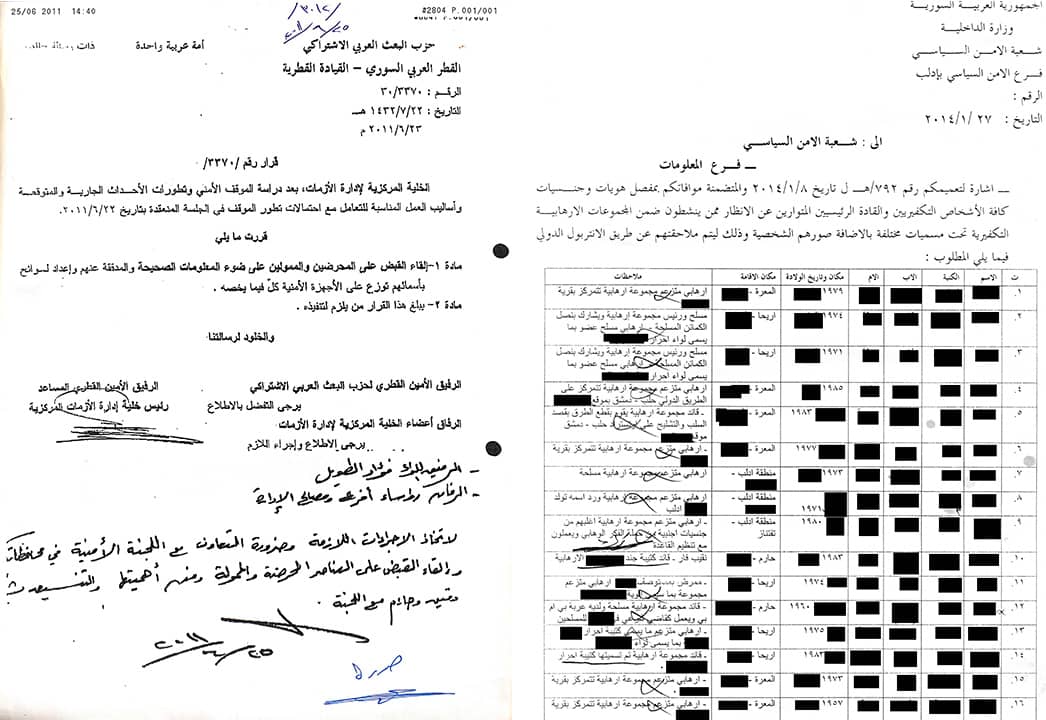 25/06 2011 14:40
#2804 P.001/001
أمة عربية واحدة
ذات
حزب البعث العربي الاشتراكي
القطر العربي السوري – القيادة القطرية
الرقم : ٣٠/٣٣٧٠
التاريخ : ١٤٣٢/٧/٢٢ هـ
٢٠١١/٦/٢٣ م
قرار رقم /٣٣٧٠/
الخلية المركزية لإدارة الأزمات، بعد دراسة الموقف الأمني وتطورات الأحداث الجارية والمتوقعة
وأساليب العمل المناسبة للتعامل مع احتمالات تطور الموقف في الجلسة المنعقدة بتاريخ ٢٠١١/٦/٢٢.
قررت ما يلي
مادة ١-إلقاء القبض على المحرضين والممولين على ضوء المعلومات الصحيحة والمدققة عنهم وإعداد لوائح
بأسمائهم توزع على الأجهزة الأمنية كلّ فيما يخصه .
مادة ٢- يبلغ هذا القرار من يلزم لتنفيذه .
والخلود لرسالتنا
الرفيق الأمين القطري المساعد
رئيس خلية إدارة الأزمات المركزية
الرفيق الأمين القطري لحزب البعث العربي الاشتراكي
يرجى التفضل بالاطلاع
الرفاق أعضاء الخلية المركزية لإدارة الأزمات
يرجى الاطلاع وإجراء اللازم
فؤاد الطويل
- الرفاق رؤساء أفرع ومصالح الإدارة
لاتخاذ الاجراءات اللازمة وضرورة التعاون مع اللجنة الأمنية في
وإلقاء القبض على العناصر المحرضة والممولة
مع اللجنة .
الجمهورية العربية السورية
وزارة الداخلية
شعبة الامن السياسي
فرع الامن السياسي بإدلب
الرقم :
التاريخ : ٢٧ /٢٠١٤/١
الى : شعبة الامن السياسي
ـ فرع المعلومات
ـ اشارة لتعميمكم رقم ٧٩٢/هـ ل تاريخ ٢٠١٤/١/٨ والمتضمنة موافاتكم بمفصل هويات وجنسيات
كافة الأشخاص التكفيريين والقادة الرئيسيين المتوارين عن الانظار ممن ينشطون ضمن المجموعات الارهابية
التكفيرية تحت مسميات مختلفة بالاضافة صورهم الشخصية وذلك ليتم ملاحقتهم عن طريق الانتربول الدولي
فيما يلي المطلوب :
ت الاسم الكنية الاب الام مكان وتاريخ الولادة مكان الاقامة ملاحظات
١. ١٩٧٩ المعرة - ارهابي متزعم مجموعة ارهابية تتمركز بقرية
٢. ١٩٧٤ اريحا - مسلح ورئيس مجموعة إرهابية ويشارك بنصل
الكمائن المسلحة - ارهابي مسلح عضو بما
يسمى لواء احرار
٣. ١٩٧١ اريحا - مسلح ورئيس مجموعة إرهابية ويشارك بنصل
الكمائن المسلحة - ارهابي مسلح عضو بما
يسمى لواء احرار
٤. ١٩٨٥ المعرة - ارهابي متزعم مجموعة ارهابية تتمركز على
الطريق الدولي حلب - دمشق بموقع
٥. ١٩٨٣ المعرة - - قائد مجموعة ارهابية يقوم بقطع الطرق بقصد
السلب والتشليح على حلب - دمشق
موقع
٦. ١٩٧٧ المعرة - ارهابي متزعم مجموعة ارهابية تتمركز بقرية
٧. ١٩٧٣ منطقة ادلب - ارهابي متزعم مجموعة إرهابية مسلحة
٨. ١٩٧١ منطقة ادلب - ارهابي متزعم مجموعة إرهابية ورد اسمه تولد
ادلب
٩. ١٩٨٠ منطقة ادلب - تفتناز - ارهابي متزعم مجموعة ارهابية اغلبهم من
جنسيات اجنبية من حملة الفكر الوهابي ويعملون
مع تنظيم القاعدة
١٠. ١٩٨٣ حارم - نقيب فار - قائد كتيبة جند الارهابية
١١. ١٩٧٤ اريحا - ارهابي متزعم
مجموعة بما
١٢. ١٩٦٠ حارم - - قائد مجموعة إرهابية مسلحة ولديه عربة بي ام
بي ويعمل كقاضي للمسلحين
١٣. ١٩٧٥ اريحا - - ارهابي متزعم ما يسمى كتيبة احرار
بما يسمى لواء
١٤. ١٩٨٣ اريحا - - قائد مجموعة ارهابية تم تسميتها كتيبة احرار
١٥. ١٩٧٣ المعرة - - ارهابي متزعم مجموعة إرهابية تتمركز بقرية
١٦. ١٩٥٧ المعرة - - ارهابي متزعم مجموعة ارهابية تتمركز بقرية